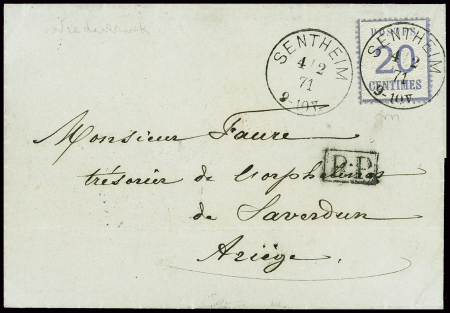 SENTHEIM
4/2
71
9-10V.
POSTES
20
CENTIMES
SENTHEIM
4/2
71
9-10V.
Monsieur Faure
P.P.
trésorier de l'orphelinat
de Saverdun
Ariège.